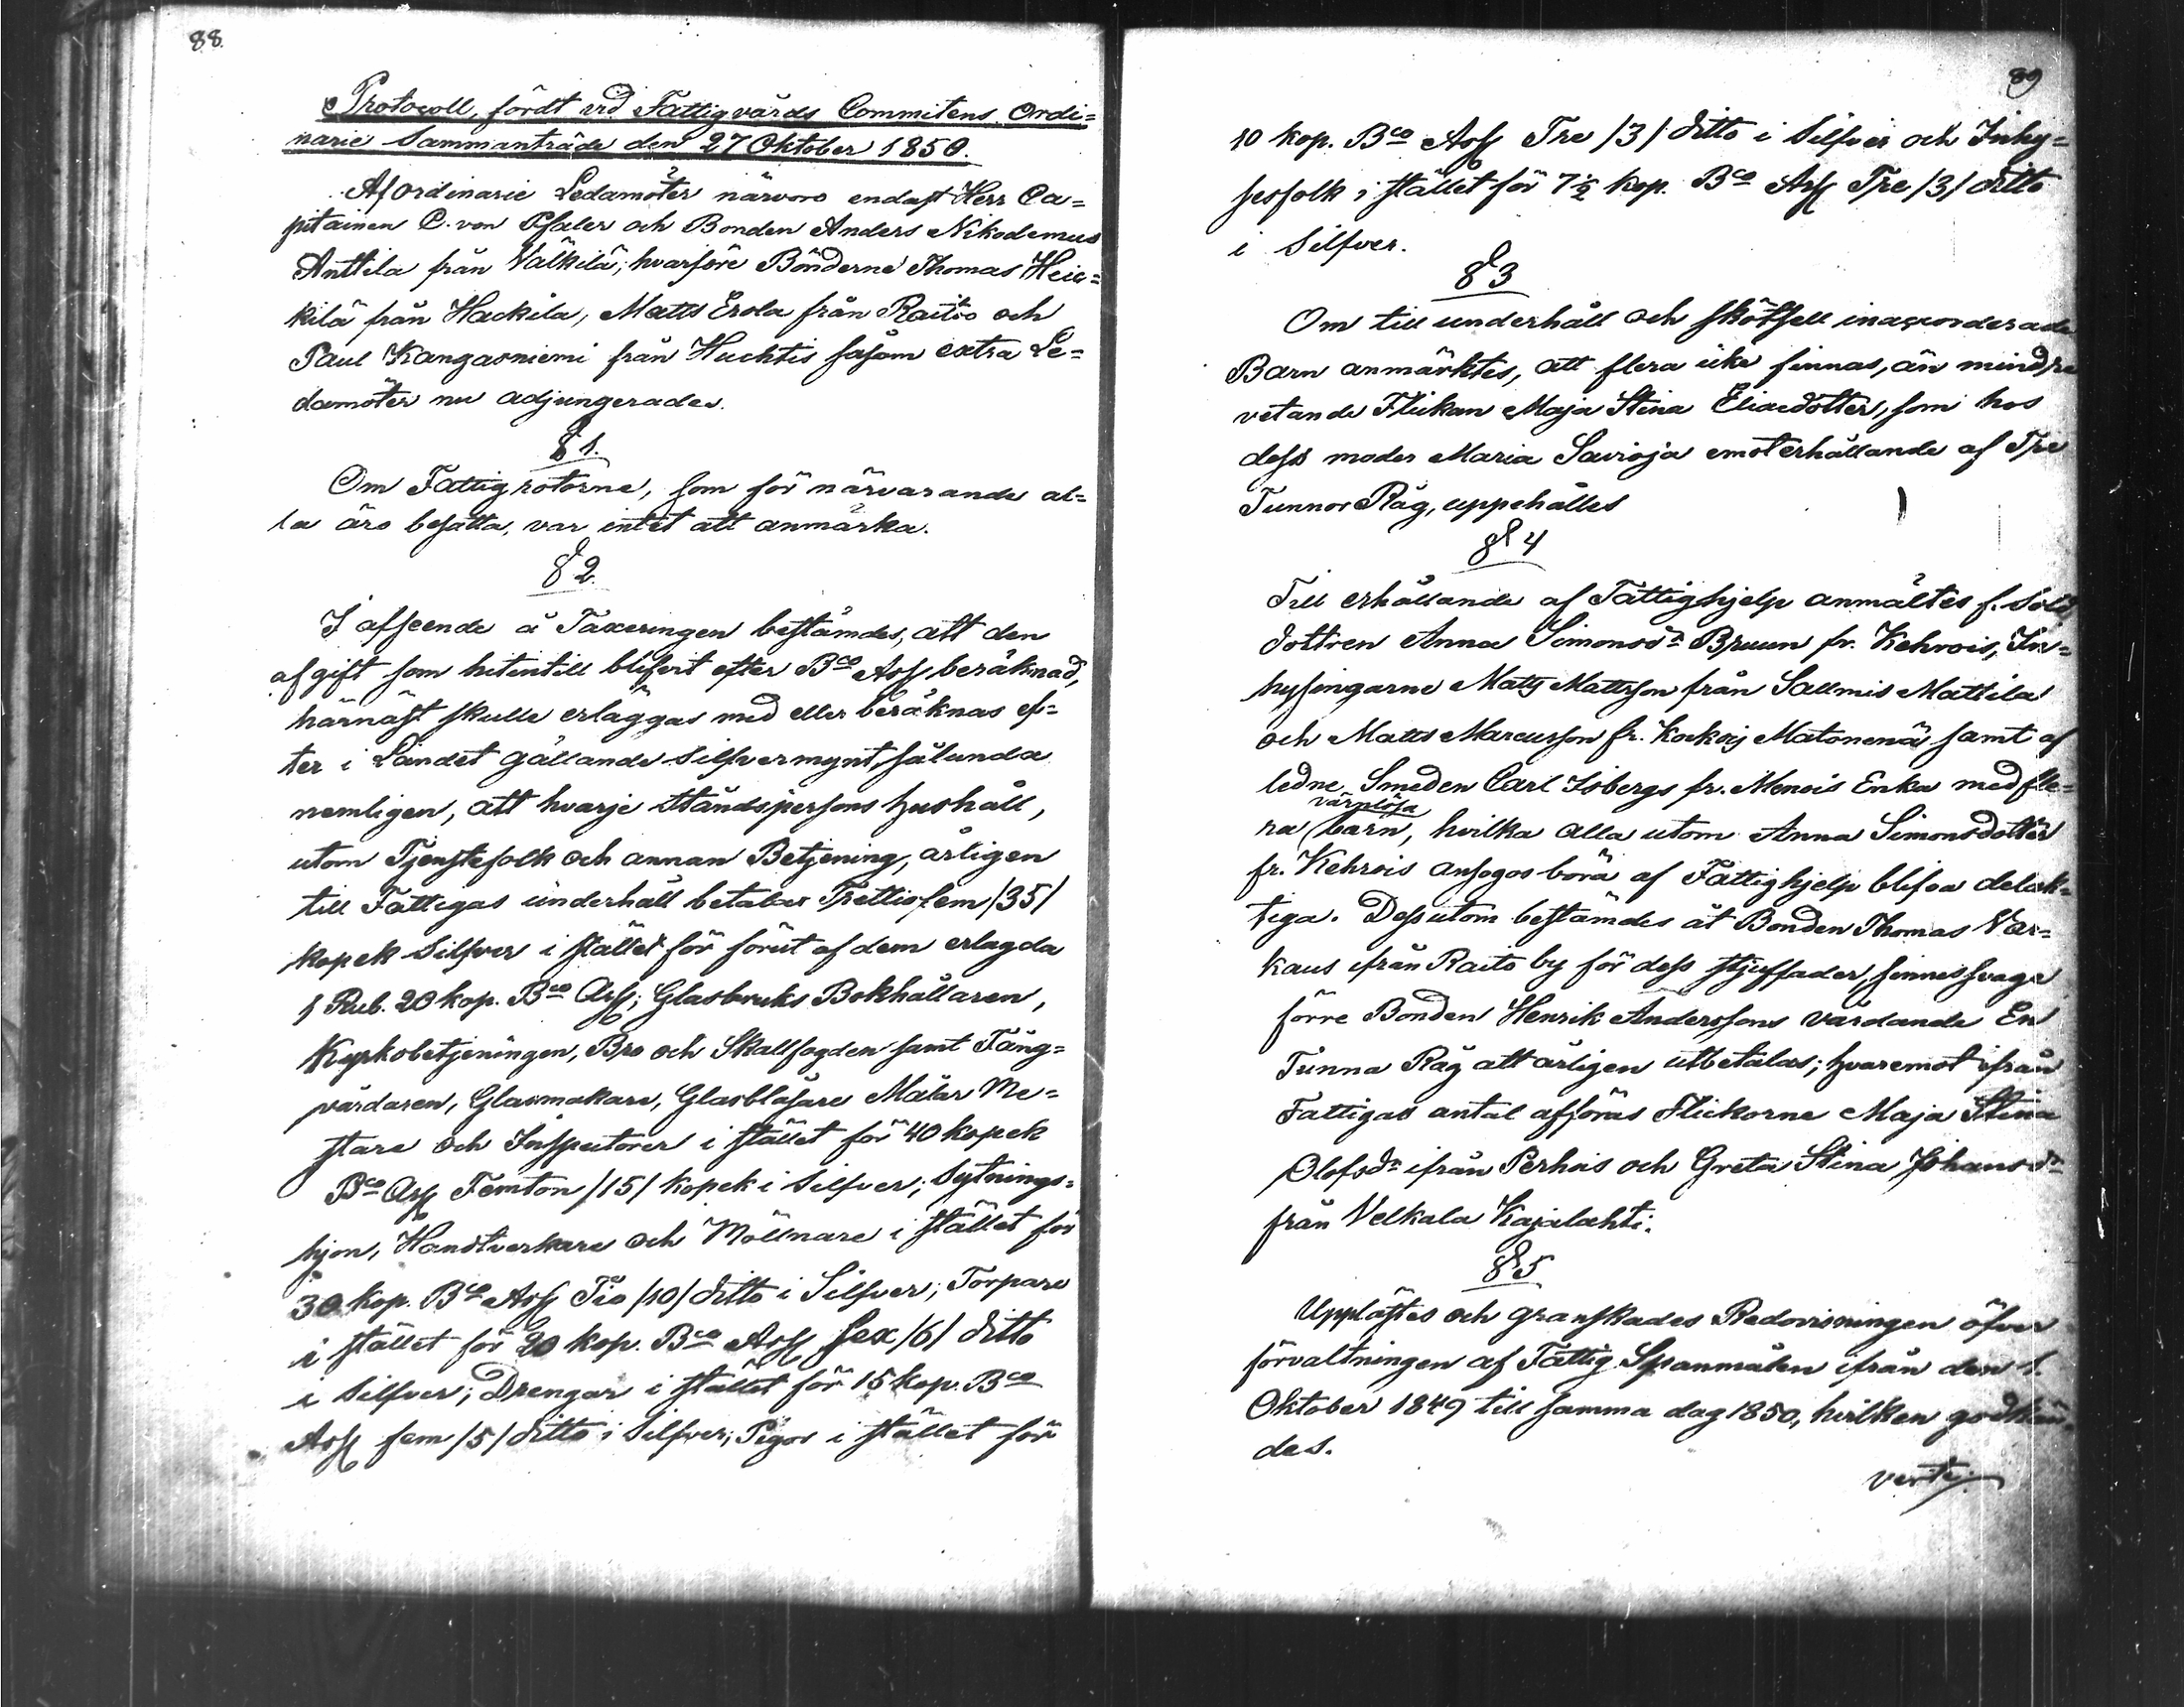 88.
Protocoll, fördt vid Fattigvårds Commitens Ordi=
narie Sammanträde den 27 Oktober 1850.
Af ordinarie Ledamöter närvoro endast Herr Ca=
pitainen C. von Pfaler och Bonden Anders Nikodemus
Anttila från Välkilä; hvarföre Bönderne Thomas Hei=
kilä från Hackila, Matts Erola från Raitio och
Paul Kangasniemi från Huchtis såsom extra Le=
damöter nu adjungerades.
§ 1.
Om Fattigrotorne, som för närvarande al=
la äro besatta, var intet att anmärka.
§ 2.
I afseende å Taxeringen bestämdes, att den
afgift som hitintill blifvit efter Bco Ass beräknad,
härnäst skulle erläggas med eller beräknas ef=
ter i Landet gällande Silfvermynt, sålunda
nemligen, att hvarje Ståndspersons hushåll,
utom Tjenstefolk och annan Betjening, årligen
till Fattigas underhåll betalar Trettiofem /35/
kopek Silfver i stället för förut af dem erlagda
1 Rub. 20 kop. Bco Ass; Glasbruks Bokhållaren,
Kyrkobetjeningen, Bro och Skallfogden samt Fång=
vårdaren, Glasmakare, Glasblåsare Målar Me=
stare och Inspectorer i stället för 40 kopek
Bco Ass Femton /15/ kopek i Silfver; Sytnings=
hjon, Handtverkare och Möllnare i stället för
30 kop. Bco Ass Tio /10/ ditto i Silfver; Torpare
i stället för 20 kop. Bco Ass sex /6/ ditto
i Silfver; Drengar i stället för 15 kop. Bco
Ass fem /5/ ditto i Silfver; Pigor i stället för
89
10 kop. Bco Ass Tre /3/ ditto i Silfver och Inhy=
sesfolk i stället för 7½ kop. Bco Ass Tre /3/ ditto
i Silfver.
§ 3
Om till underhåll och skötsell inackorderade
Barn anmärktes, att flera icke finnas, än mindre
vetande Flickan Maja Stina Eliaedotter, som hos
dess moder Maria Savioja emot erhållande af Tre
Tunnor Råg, uppehålles
§ 4
Till erhållande af Fattighjelp anmältes f. Sold
dottren Anna Simonsdr Bruun fr. Kehrois, In=
hysingarne Matts Mattsson från Sallmis Mattila
och Matts Marcusson fr. Kockoij Matonenä samt af
ledne Smeden Carl Isbergs fr. Menois Enka med fle=
värnlösa
ra barn, hvilka alla utom Anna Simonsdotter
fr. Kehrois ansågos böra af Fattighjelp blifva delak=
tiga. Dessutom bestämdes åt Bonden Thomas Var=
kaus ifrån Raito by för dess stjuffader, sinnessvage
förre Bonden Henrik Anderssons vårdande En
Tunna Råg att årligen utbetalas; hvaremot ifrån
Fattigas antal afföras Flickorne Maja Stina
Olofsdr ifrån Perhois och Greta Stina Johansdr
från Velkala Kajalahti.
§ 5
Upplästes och granskades Redovisningen öfver
förvaltningen af Fattig Spanmålen ifrån den 1.
Oktober 1849 till samma dag 1850, hvilken godkän=
des.
verte